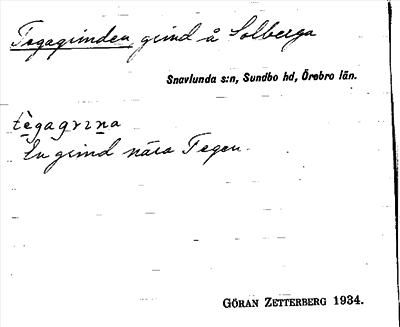 Tegagrinden, grind å Solberga
Snavlunda s:n, Sundbo hd, Örebro län.
tègagrɪna
En grind nära Tegen.
GÖRAN ZETTERBERG 1934.